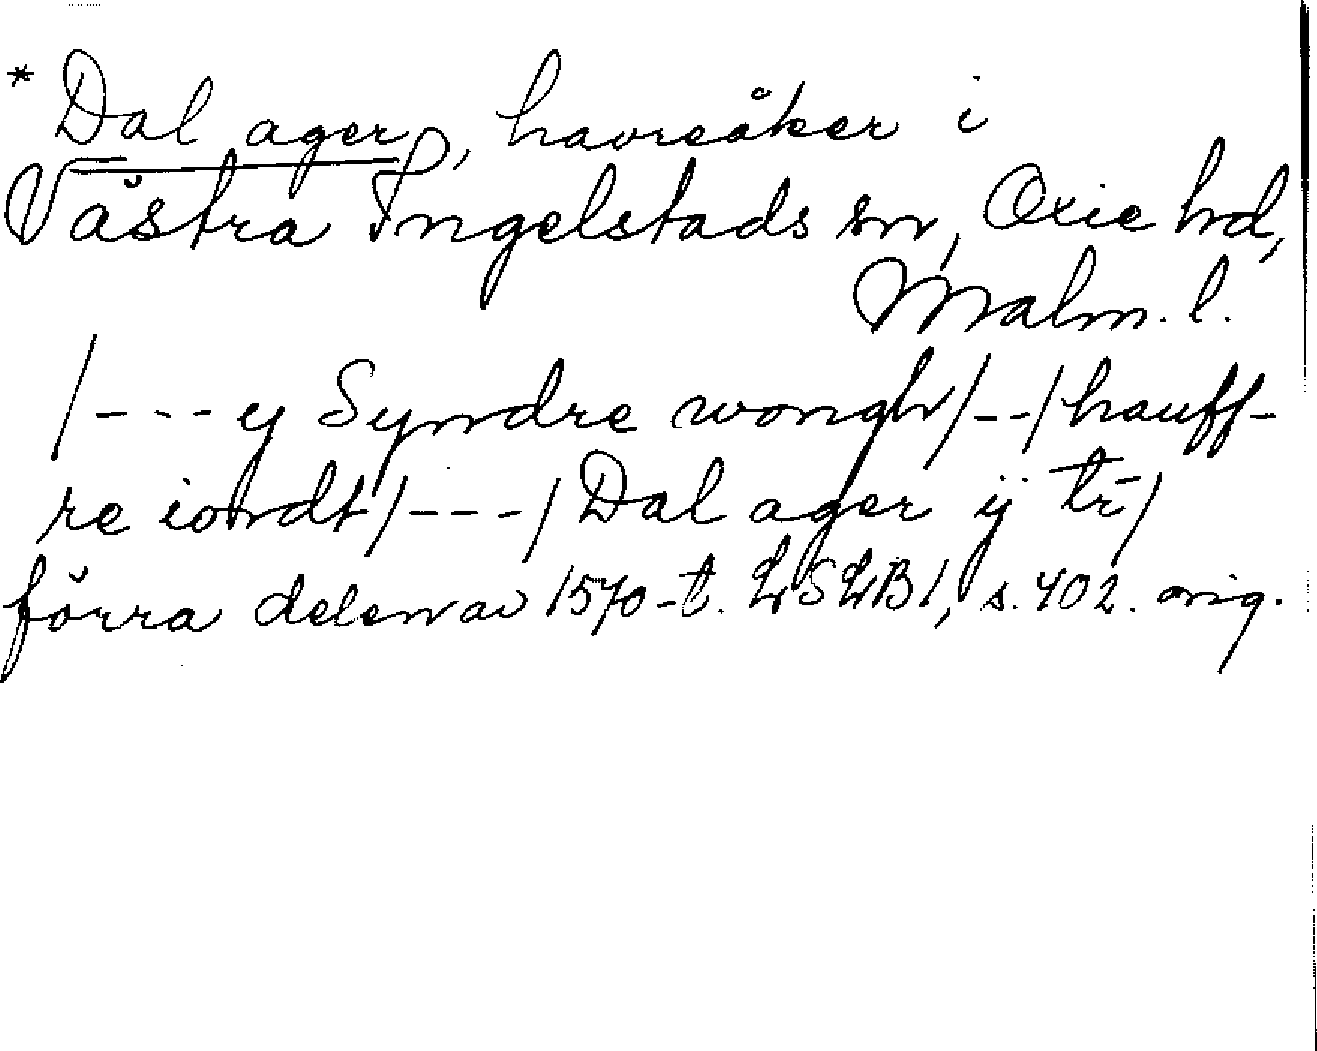 * Dal ager, havreåker i
Västra Ingelstads sn, Oxie hd,
Malm. l.
/---y Syndre wongh/--/hauff-
re iordt/---/Dal ager ij tr/
förra delen av 1570-t. LSLB1, s. 402. orig.